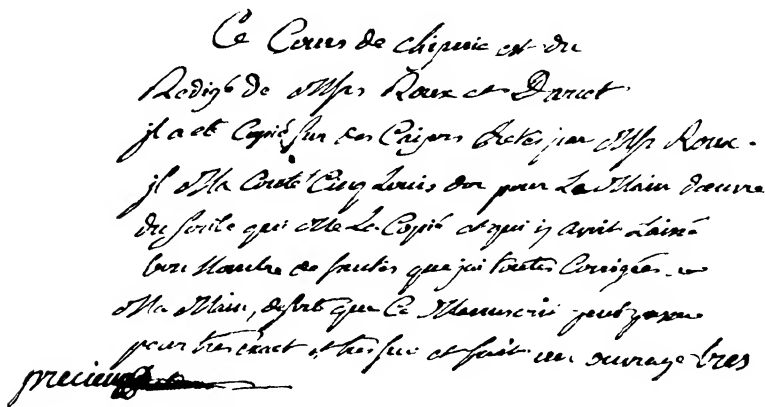 Ce Cours de chymie est du
Redigé de Mrs Roux et Darcet
jl a eté Copié sur des Cayers pretés par Mr Roux.
jl Ma Couté Cinq Louis dor pour La Main dœuvre
du scribe qui Me La Copié et qui y avoit Laissé
bon Nombre de fautes que jai toutes Corrigées de
Ma Main, desorte que Ce Manuscrit peut passer
pour tres exact et tres sur et fait un ouvrage tres
precieux